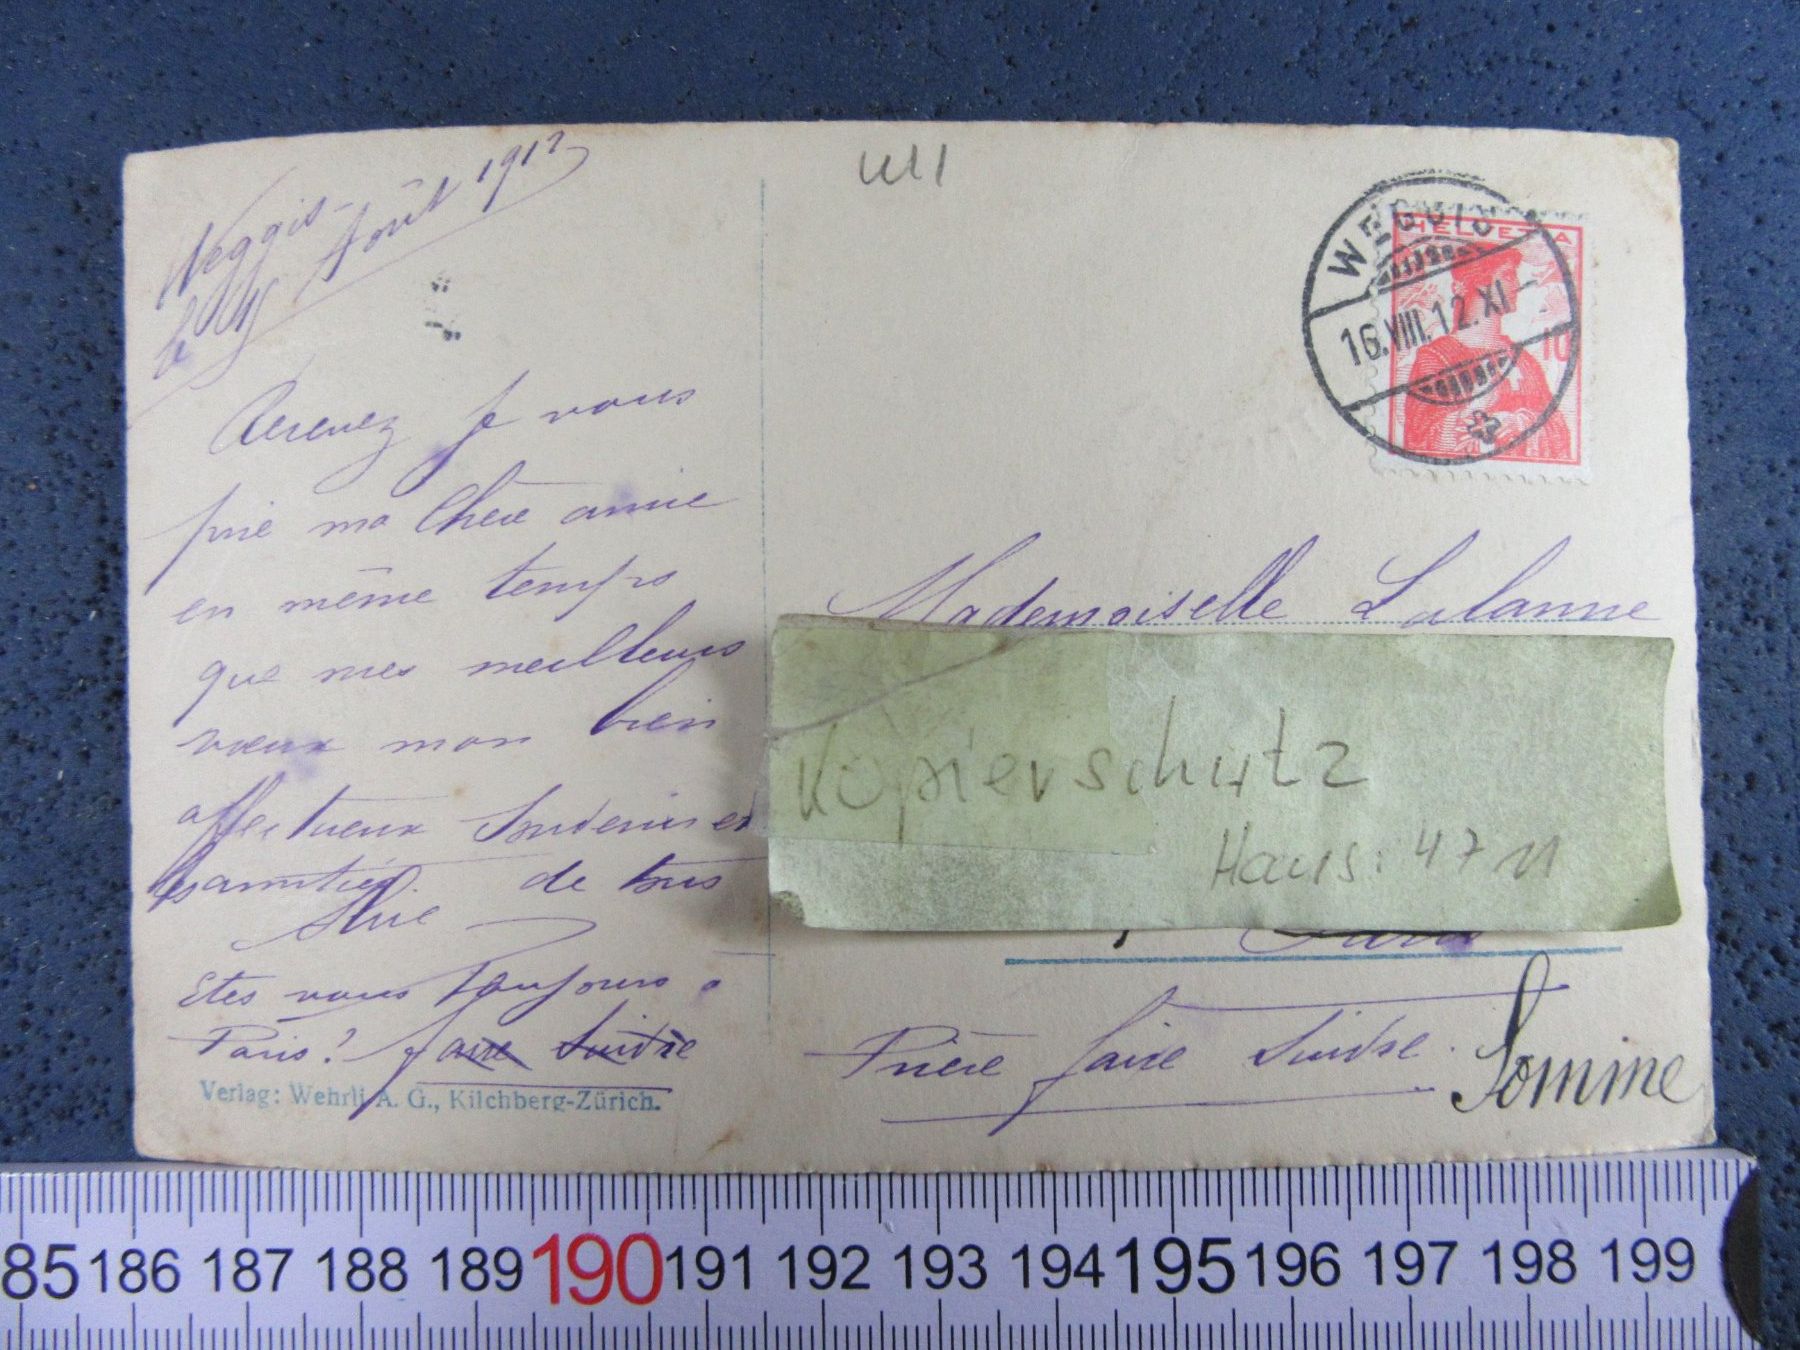 Weggis -
Août 1912
Recevez je vous
prie ma Chère amie
en même temps
que mes meilleurs
voeux mon bien
affectueux Souvenir et
les amitiés de tous
Etes vous toujours à
Paris? faire suivre
Verlag: Wehrli A. G., Kilchberg-Zürich.
WEGGIS
16.VIII.12.XI-
HELVETIA
10
Mademoiselle Lalanne
Kopierschutz
Haus: 4711
Paris
Prière faire suivre.
Somme
85 186 187 188 189 190 191 192 193 194 195 196 197 198 199